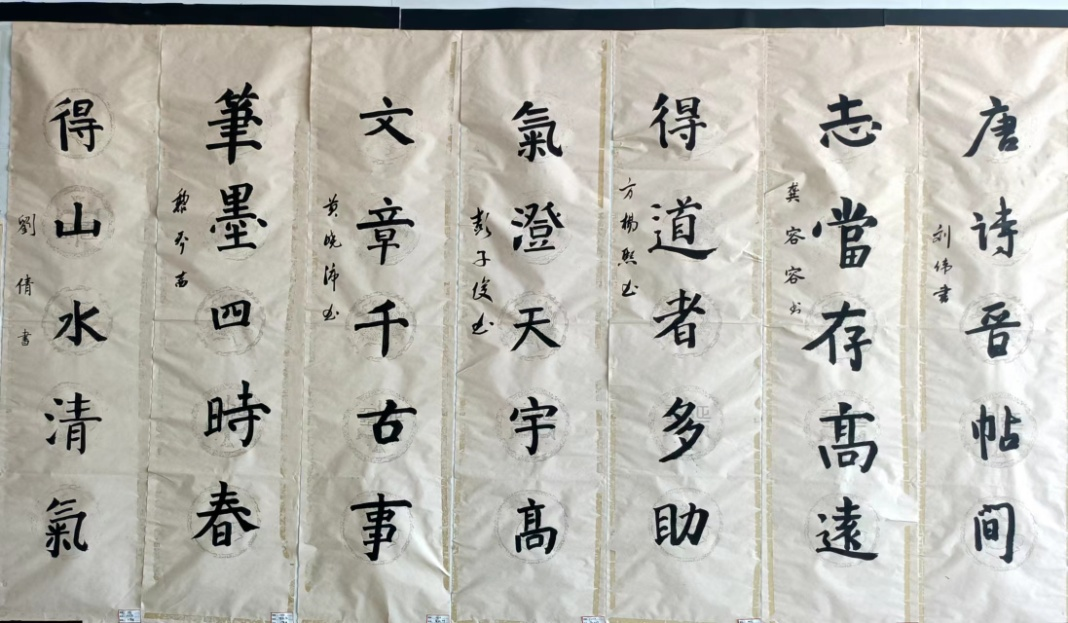 唐诗晋帖间
刘伟書
志當存髙遠
龚容容书
得道者多助
方楊熙书
氣澄天宇髙
彭子俊书
文章千古事
黄晓沛书
筆墨四時春
得山水清氣
劉倩書